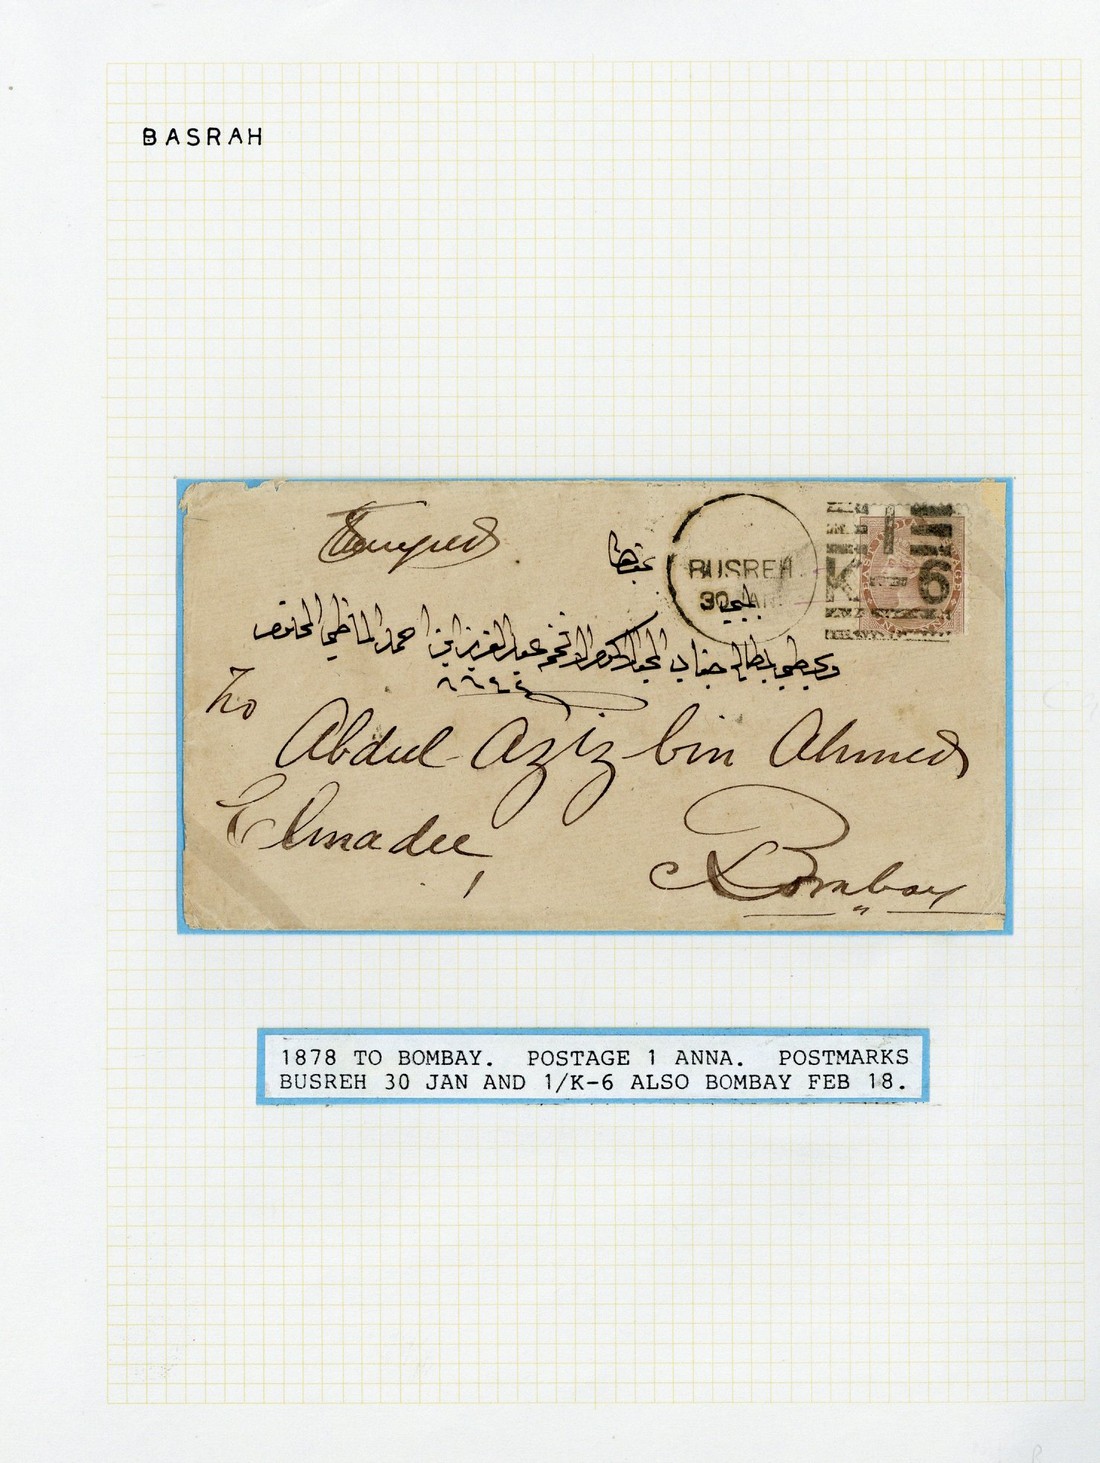 BASRAH
Stamped
BUSREH
30 JAN
1
K-6
بمبي
عبد العزيز ابن احمد
To
Abdul Aziz bin Ahmed
Elmadee
Bombay
1878 TO BOMBAY. POSTAGE 1 ANNA. POSTMARKS
BUSREH 30 JAN AND 1/K-6 ALSO BOMBAY FEB 18.